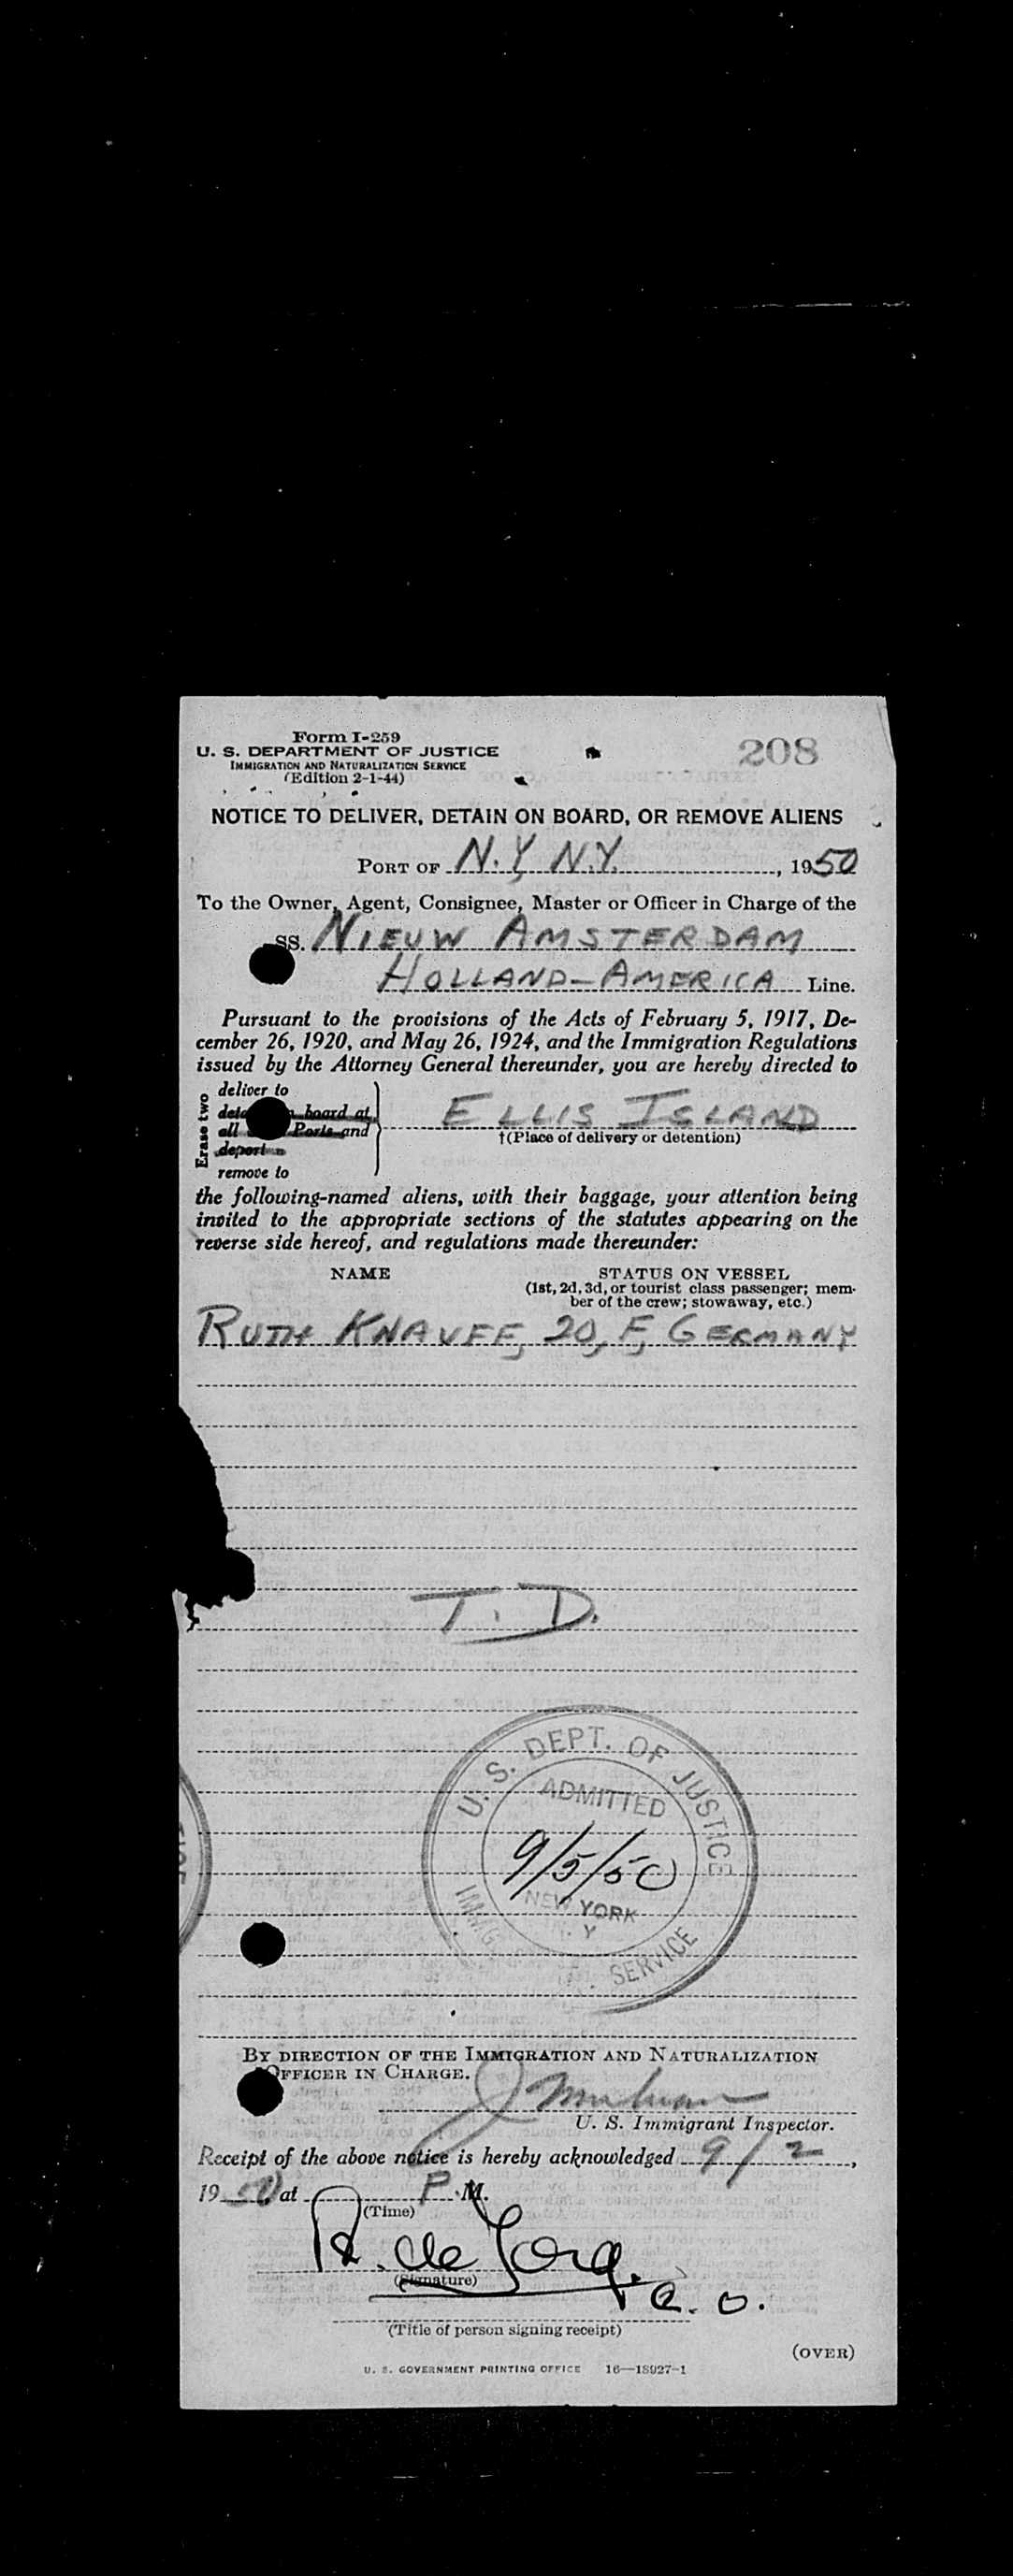 Form I-259
U. S. DEPARTMENT OF JUSTICE
IMMIGRATION AND NATURALIZATION SERVICE
(Edition 2-1-44)
208
NOTICE TO DELIVER, DETAIN ON BOARD, OR REMOVE ALIENS
PORT OF N.Y. N.Y., 1950
To the Owner, Agent, Consignee, Master or Officer in Charge of the
SS. NIEUW AMSTERDAM
HOLLAND-AMERICA Line.
Pursuant to the provisions of the Acts of February 5, 1917, De-
cember 26, 1920, and May 26, 1924, and the Immigration Regulations
issued by the Attorney General thereunder, you are hereby directed to
Erase two
deliver to
board at
all Ports and
deport
remove to
ELLIS ISLAND
†(Place of delivery or detention)
the following-named aliens, with their baggage, your attention being
invited to the appropriate sections of the statutes appearing on the
reverse side hereof, and regulations made thereunder:
NAME
STATUS ON VESSEL
(1st, 2d, 3d, or tourist class passenger; mem-
ber of the crew; stowaway, etc.)
RUTH KNAUFF, 20, F, GERMANY
T. D.
U. S. DEPT. OF JUSTICE
ADMITTED
9/5/50
NEW YORK
Y
IMMIG. SERVICE
BY DIRECTION OF THE IMMIGRATION AND NATURALIZATION
OFFICER IN CHARGE.
U. S. Immigrant Inspector.
Receipt of the above notice is hereby acknowledged 9/2,
1950 at P. M.
(Time)
R. de Jong.
(Signature)
C. O.
(Title of person signing receipt)
(OVER)
U. S. GOVERNMENT PRINTING OFFICE 16—18927-1